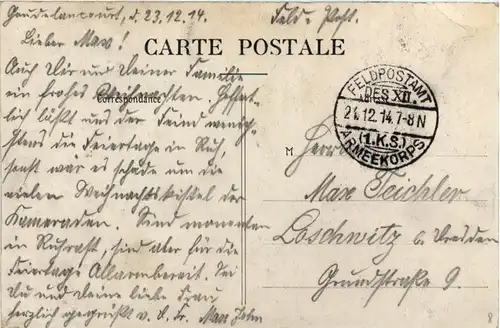 Goudelancourt, d. 23.12.14.
Feld-Post.
Lieber Max!
CARTE POSTALE
Auch Dir und Deiner Familie
ein frohes Weihnachten. Hoffent-
Correspondance
lich läßt uns der Feind wenig-
stens die Feiertage in Ruh,
sonst wär es schade um die
vielen Weihnachtskistel der
Kameraden. Sind momentan
in Ruhe, sind aber für die
Feiertage Allarmbereit. Sei
Du und Deine liebe Frau
herzlich gegrüßt v. D. Fr. Max
FELDPOSTAMT
DES XII.
24.12.14.7-8N
(1.K.S.)
ARMEEKORPS
M
Herrn
Max Teichler
Loschwitz b. Dresden
Grundstraße 9.
8